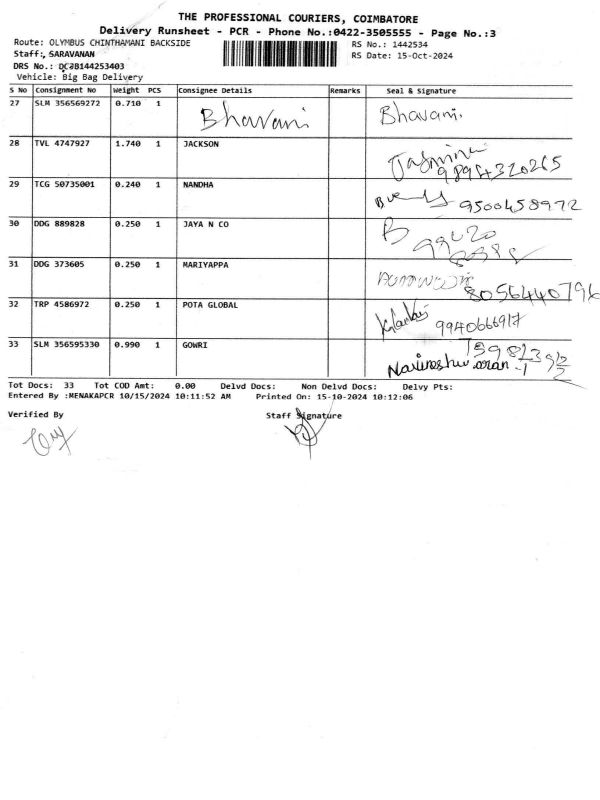 THE PROFESSIONAL COURIERS, COIMBATORE
Delivery Runsheet - PCR - Phone No.:0422-3505555 - Page No.:3
Route: OLYMBUS CHINTHAMANI BACKSIDE RS No.: 1442534
Staff:, SARAVANAN RS Date: 15-Oct-2024
DRS No.: DCJB144253403
Vehicle: Big Bag Delivery
S No Consignment No Weight PCS Consignee Details Remarks Seal & Signature
27 SLM 356569272 0.710 1 Bhavani Bhavani.
28 TVL 4747927 1.740 1 JACKSON Jasmine
9894320265
29 TCG 50735001 0.240 1 NANDHA 9500458972
30 DDG 889828 0.250 1 JAYA N CO B
31 DDG 373605 0.250 1 MARIYAPPA 8056440796
32 TRP 4586972 0.250 1 POTA GLOBAL 9940666917
33 SLM 356595330 0.990 1 GOWRI
Tot Docs: 33 Tot COD Amt: 0.00 Delvd Docs: Non Delvd Docs: Delvy Pts:
Entered By :MENAKAPCR 10/15/2024 10:11:52 AM Printed On: 15-10-2024 10:12:06
Verified By Staff Signature